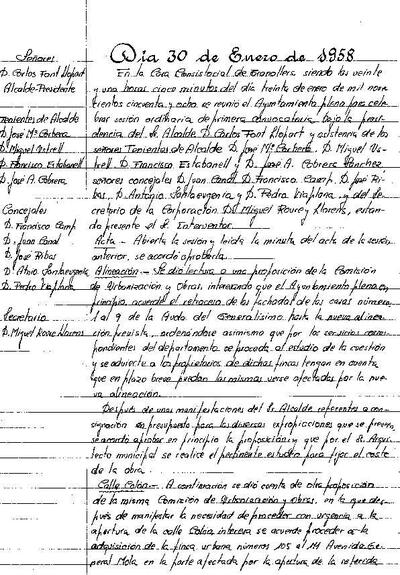 Señores
D. Carlos Font Llopart
Alcalde-Presidente
Tenientes de Alcalde
D. José Mª Corbera
D. Miquel Vetrell
D. Francisco Estabanell
D. José A. Cobrera
Concejales
D. Francisco Camp
D. Juan Canal
D. José Ribas
D. Pedro Viaplana
Secretario
D. Miguel Roure Llorens
Día 30 de Enero de 1958
En la Casa Consistorial de Granollers, siendo las veinte
y una horas cinco minutos del día treinta de enero de mil nove
cientos cincuenta y ocho se reunió el Ayuntamiento pleno para cele
brar sesión ordinaria de primera convocatoria bajo la presi-
dencia del Sr. Alcalde D. Carlos Font Llopart y asistencia de los
señores Tenientes de Alcalde D. José Mª Corbera, D. Miquel Ve-
trell, D. Francisco Estabanell y D. José A. Cobrera Sánchez
señores concejales D. Juan Canal, D. Francisco Camp, D. José Ri-
bas, D. Antonio Santaeugenia y D. Pedro Viaplana, y del Se-
cretario de la Corporación D. Miguel Roure y Llorens, estan-
do presente el Sr. Interventor.
Acta - Abierta la sesión y leída la minuta del acta de la sesión
anterior, se acordó aprobarla.
Alineación - Se dió lectura a una proposición de la Comisión
de Urbanización y Obras, interesando que el Ayuntamiento pleno en
principio, acuerde el retroceso de las fachadas de las casas números
1 al 9 de la Avda del Generalísimo hasta la nueva alinea-
ción prevista, ordenándose asimismo que por los servicios corres
pondientes del departamento se proceda al estudio de la cuestión
y se advierte a los propietarios de dichas fincas tengan en cuenta
que en plazo breve puedan las mismas verse afectadas por la nue
va alineación.
Después de unas manifestaciones del Sr. Alcalde referentes a con-
signación en presupuesto para las diversas expropiaciones que se prevén,
se acordó aprobar en principio la proposición y que por el Sr. Arqui
tecto municipal se realice el pertinente estudio para fijar el coste
de la obra.
Calle Colón - A continuación se dió cuenta de otra proposición
de la misma Comisión de Urbanización y Obras, en la que des-
pués de manifestar la necesidad de proceder con urgencia a la
apertura de la calle Colón, interesa se acuerde proceder a la
adquisición de la finca urbana números 105 al 111 Avenida Ge-
neral Mola en la parte afectada por la apertura de la referida